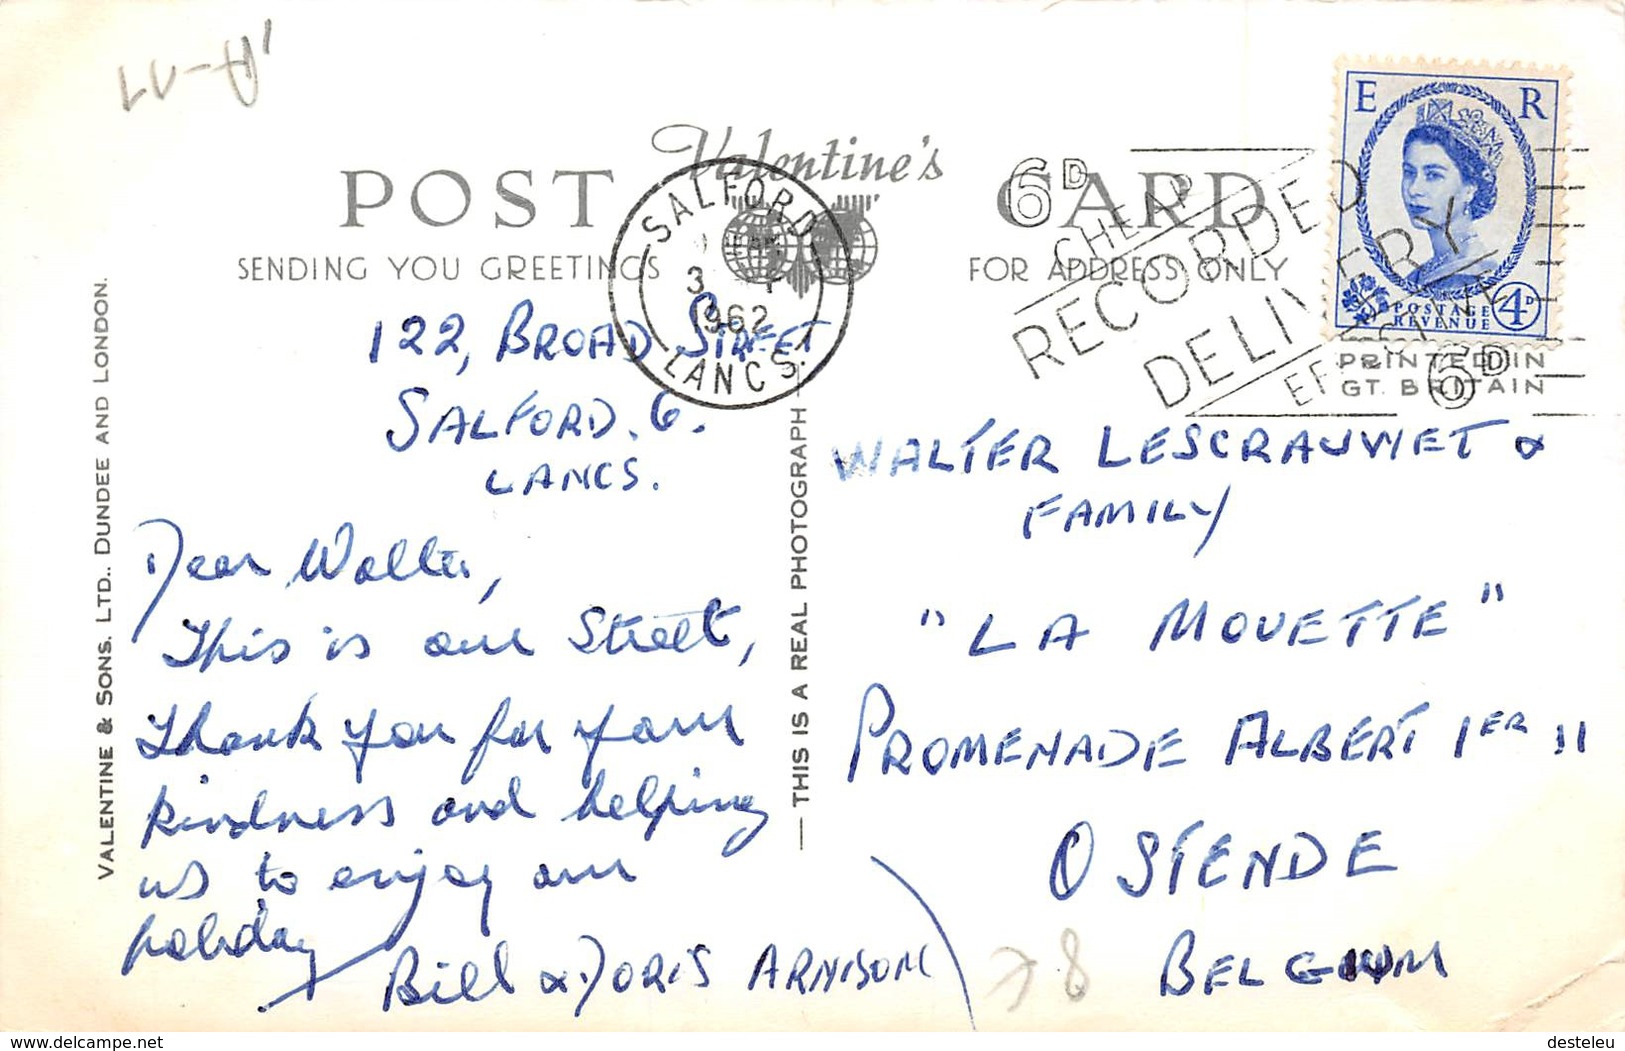 Valentine's
POST CARD
SENDING YOU GREETINGS
FOR ADDRESS ONLY
SALFORD
3
1962
LANCS.
6D
CHEAP
RECORDED
DELIVERY
6D
E R
POSTAGE
REVENUE
4D
PRINTED IN
GT. BRITAIN
VALENTINE & SONS. LTD., DUNDEE AND LONDON.
— THIS IS A REAL PHOTOGRAPH —
122, BROAD STREET
SALFORD. 6.
LANCS.
Dear Walter,
This is our Street,
Thank you for your
kindness and helping
us to enjoy our
holiday
Bill & DORIS ARNISON
WALTER LESCRAUWET &
FAMILY
"LA MOUETTE"
PROMENADE ALBERT 1ER 11
OSTENDE
BELGIUM
78
www.delcampe.net
desteleu